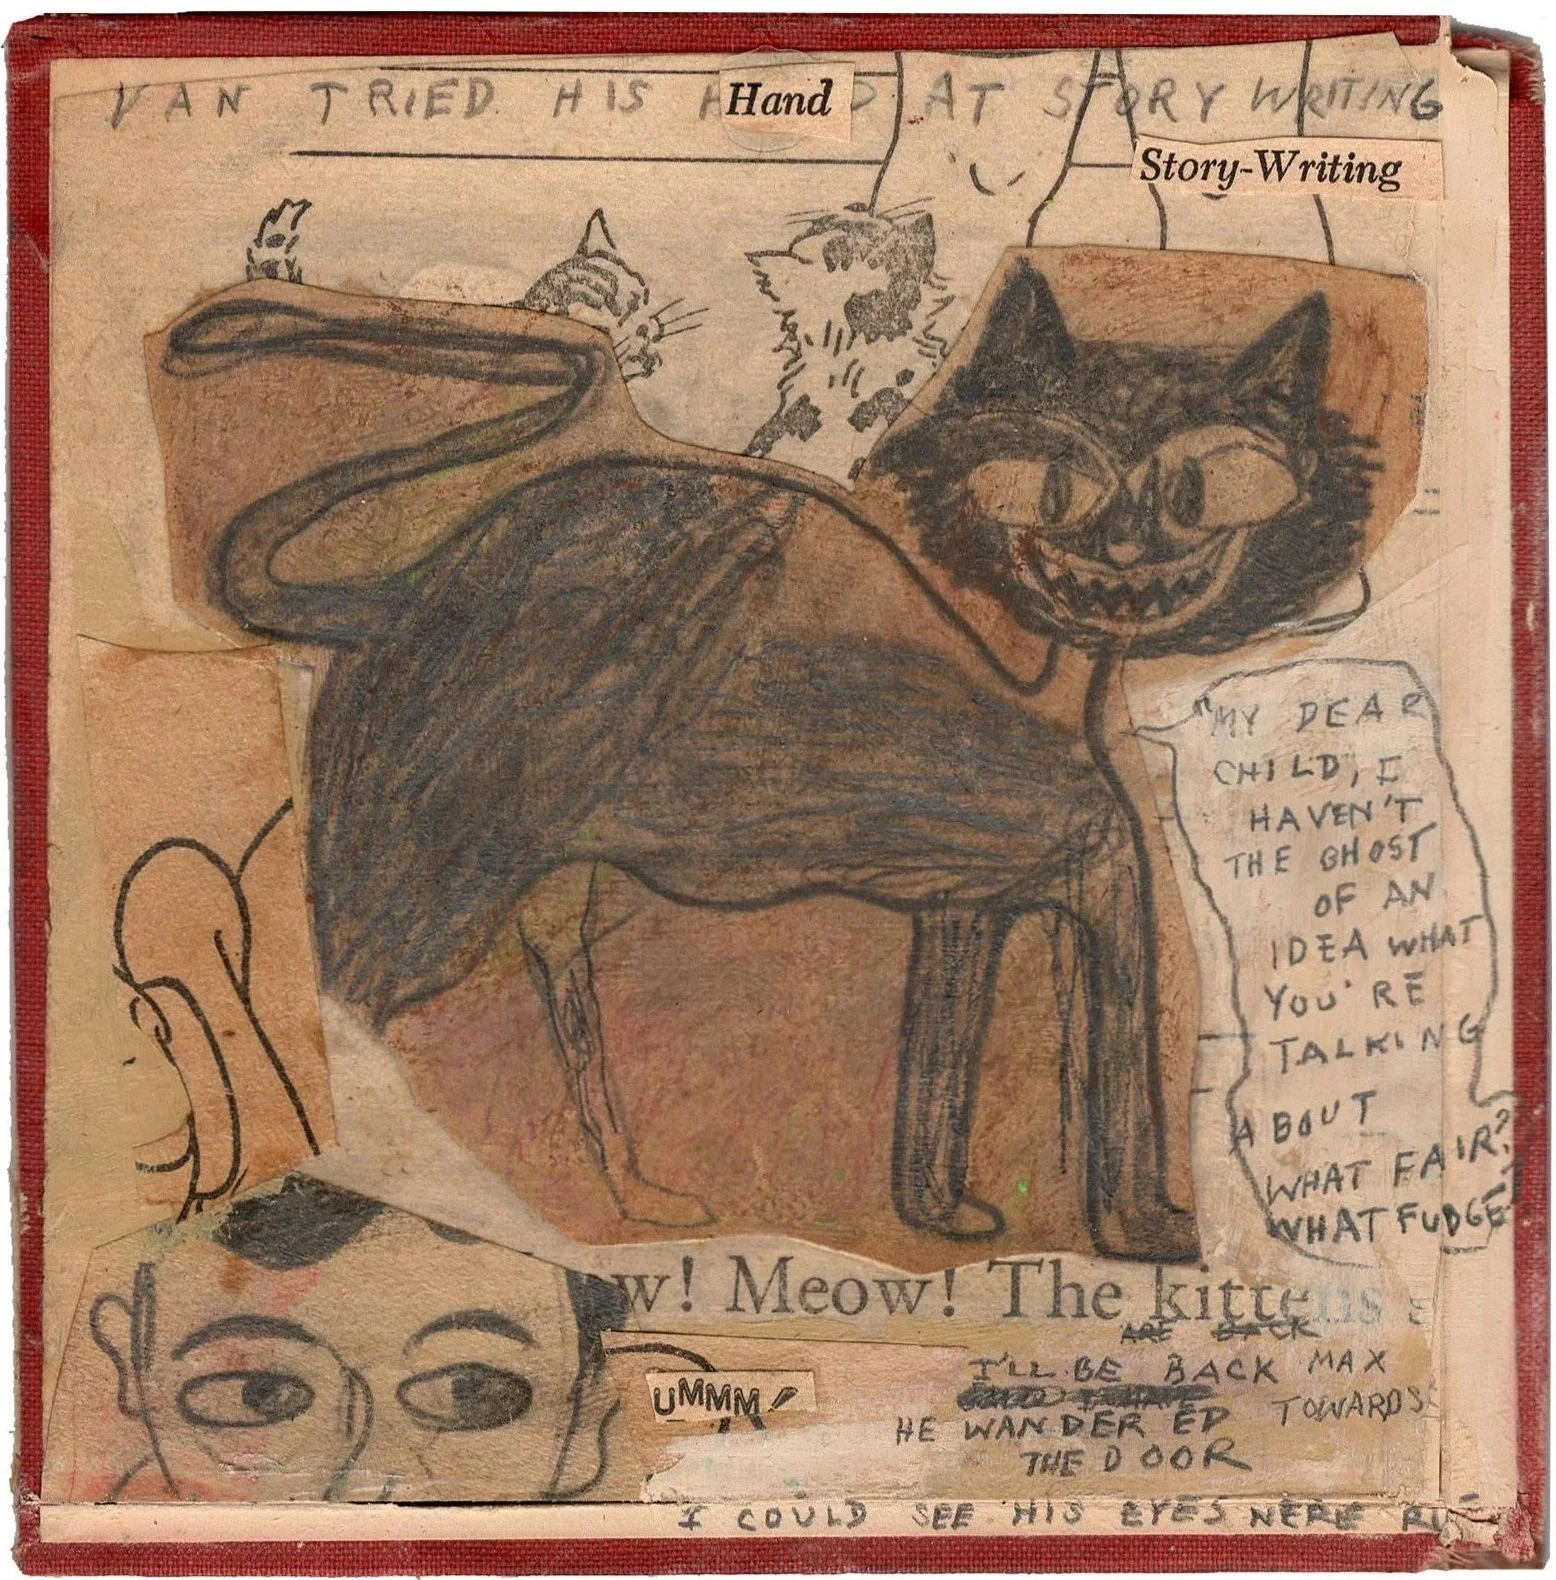 VAN TRIED HIS Hand AT STORY WRITING
Story-Writing
"MY DEAR
CHILD, I
HAVEN'T
THE GHOST
OF AN
IDEA WHAT
YOU'RE
TALKING
ABOUT
WHAT FAIR?
WHAT FUDGE?
w! Meow! The kittens
ARE BACK
I'LL BE BACK MAX
UMMM!
HE WANDERED TOWARDS
THE DOOR
I COULD SEE HIS EYES WERE